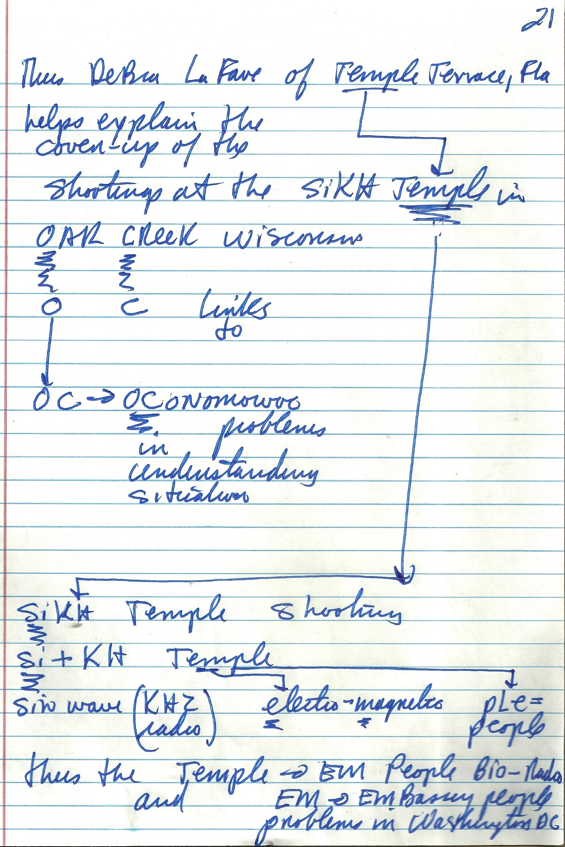 21
Thus Debra LaFave of Temple Terrace, Fla
helps explain the
cover-up of the
shootings at the SiKH Temple in
OAK CREEK Wisconsin
O C Links
to
OC → OCONOMOWOC
problems
in
understanding
situation
SiKH Temple Shooting
Si + KH Temple
Sin wave (KHZ radio) electro-magnetic pLe =
people
thus the Temple → EM People Bio-Radio
and EM → EMBassy people
problems in Washington DC